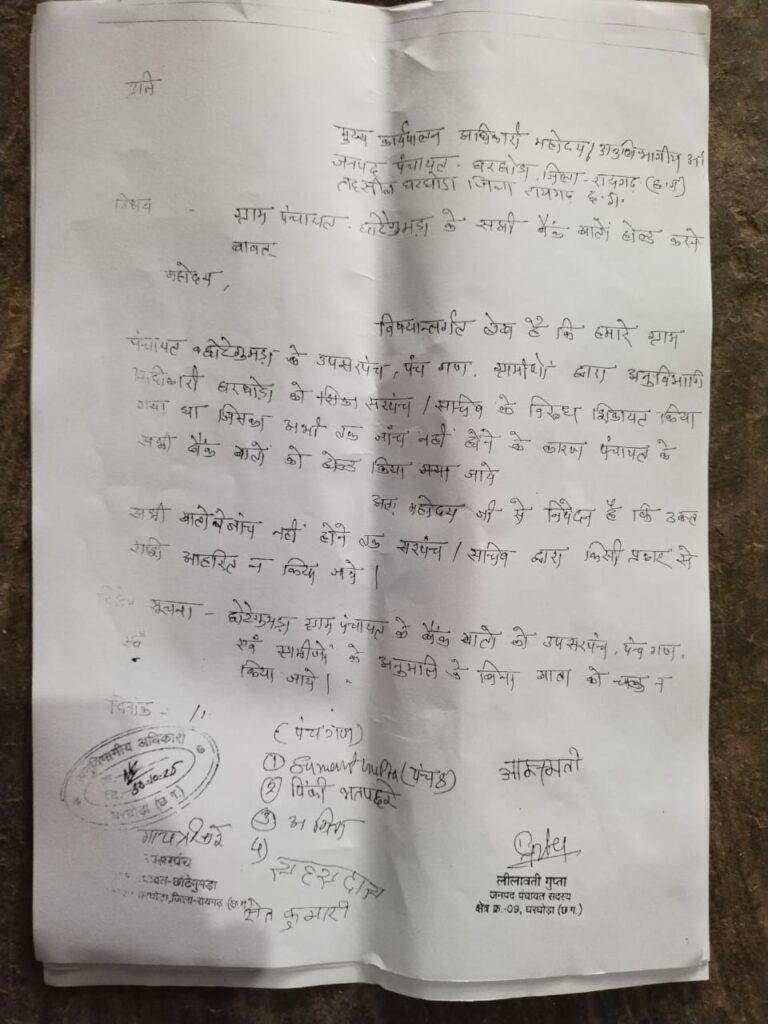 प्रति
मुख्य कार्यपालन अधिकारी महोदय/अनुविभागीय
जनपद पंचायत - घरघोड़ा, जिला-रायगढ़ (छ.ग)
तहसील घरघोड़ा जिला रायगढ़ छ.ग.
विषय - ग्राम पंचायत - छोटेगुमड़ा के सभी बैंक खातों होल्ड करने
बावत्
महोदय,
विषयान्तर्गत लेख है कि हमारे ग्राम
पंचायत छोटेगुमड़ा के उपसरपंच, पंच गण, ग्रामीणों द्वारा अनुविभागि
अधिकारी घरघोड़ा को सरपंच / सचिव के विरुध शिकायत किया
गया था जिसका अभी तक जांच नहीं होने के कारण पंचायत के
सभी बैंक खातों को होल्ड किया जाये
अतः महोदय जी से निवेदन है कि उक्त
सभी खातों जांच नहीं होने तक सरपंच / सचिव द्वारा किसी प्रकार से
राशि आहरित न किया जावे |
सूचना - छोटेगुमड़ा ग्राम पंचायत के बैंक खातों को उपसरपंच, पंच गण,
एवं ग्रामीणों के अनुमति के बिना खाता को चालु न
किया जाये |
दिनांक - / /
(पंचगण)
अनुविभागीय अधिकारी
03-10-25
घरघोड़ा (छ.ग.)
① (पंच
② पिंकी भतपहरे
③
4)
गायत्री
उपसरपंच
छोटेगुमडा
जिला-रायगढ़ (छ.ग.)
कुमारी
लीलावती गुप्ता
जनपद पंचायत सदस्य
क्षेत्र क्र.-09, घरघोड़ा (छ.ग.)